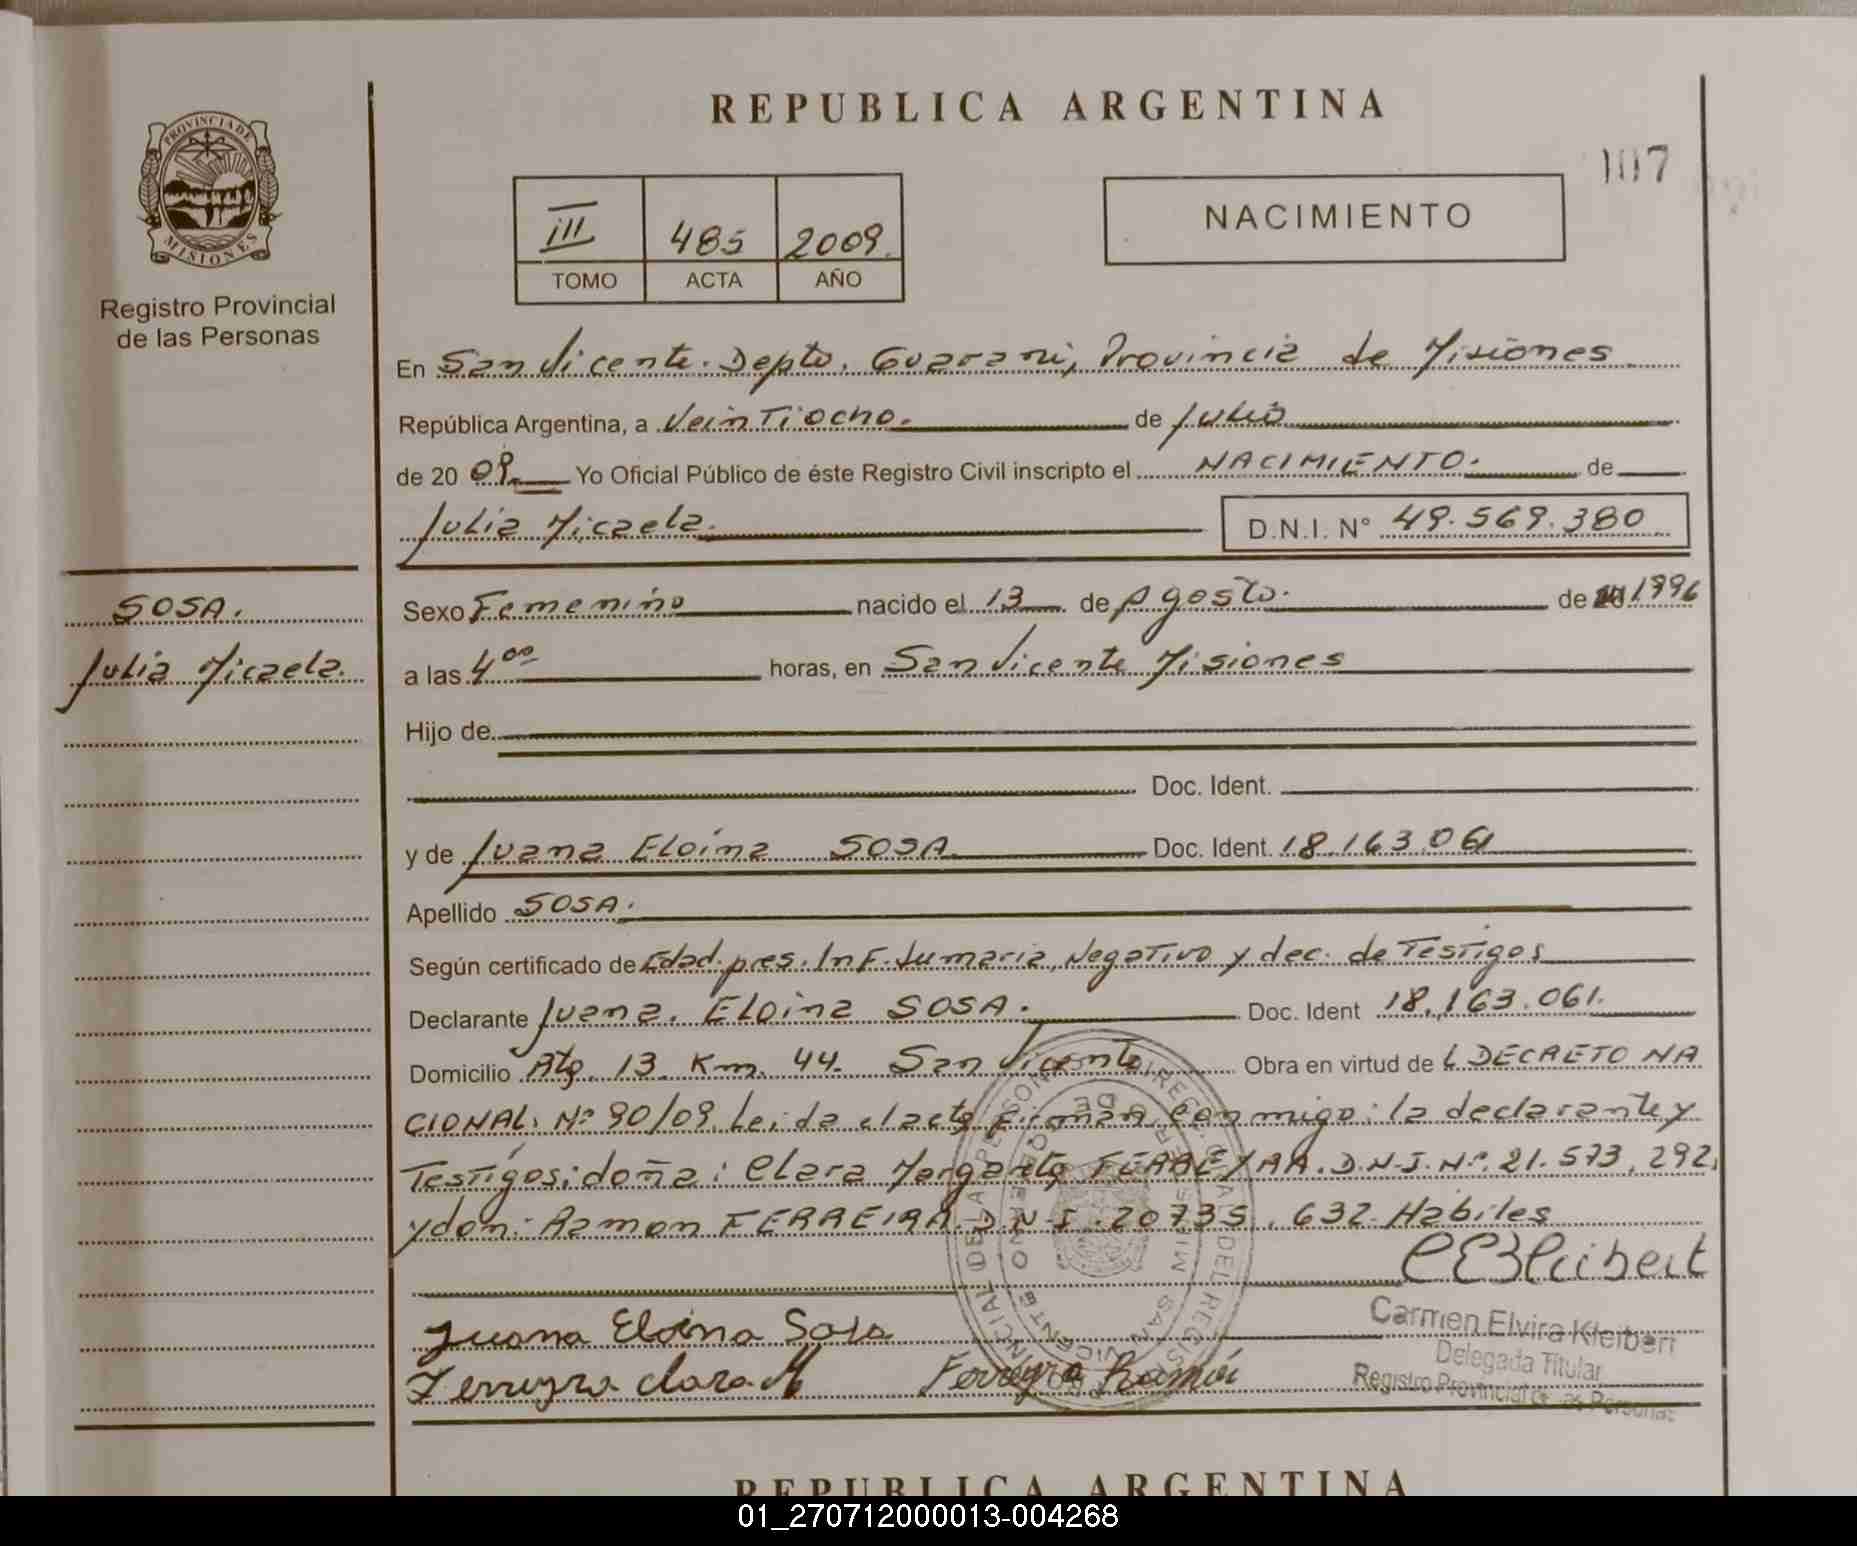 REPUBLICA ARGENTINA
107
PROVINCIA DE
MISIONES
Registro Provincial
de las Personas
III 485 2009.
TOMO ACTA AÑO
NACIMIENTO
En San Vicente. Depto. Guarani, Provincia de Misiones
República Argentina, a VeinTiocho. de Julio
de 20 09. Yo Oficial Público de éste Registro Civil inscripto el NACIMIENTO. de
Julia Micaela. D.N.I. N° 49.569.380
SOSA.
Julia Micaela.
Sexo Femenino nacido el 13 de Agosto. de 1996
a las 4⁰⁰ horas, en San Vicente Misiones
Hijo de
Doc. Ident.
y de Juana Eloina SOSA Doc. Ident. 18.163.061
Apellido SOSA.
Según certificado de Edad. pres. Inf. Sumaria, Negativo y dec. de Testigos
Declarante Juana. Eloina SOSA. Doc. Ident 18.163.061.
Domicilio Rta. 13 Km. 44. San Vicente Obra en virtud de L DECRETO NA
CIONAL. Nº 90/09. Leida el acta firman conmigo: la declarante y
Testigos: doña: Clara Margarita FERREYRA. D.N.I. Nº. 21.573.292,
y don: Ramon FERREIRA. D.N.I. 20735.632. Habiles
CEKleibert
Juana Eloina Sosa
Ferreyra Clara M
Ferreyra Ramón
Carmen Elvira Kleibert
Delegada Titular
Registro Provincial de las Personas
REPUBLICA ARGENTINA
01_270712000013-004268